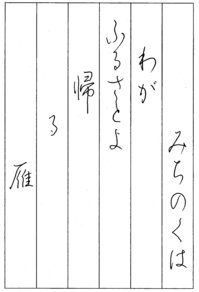 みちのくは
わが
ふるさとよ
帰
る
雁